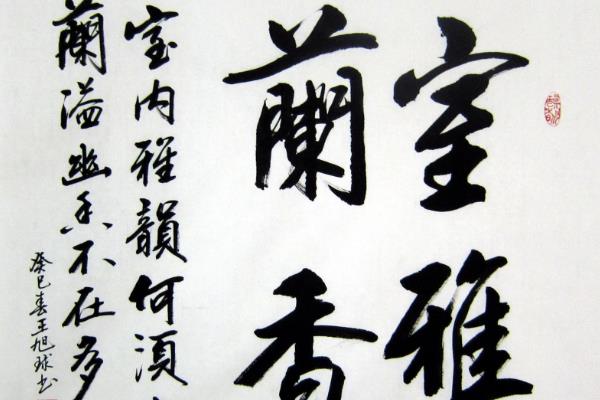 室雅
蘭香
室内雅韻何須
蘭溢幽香不在多
癸巳春王旭球书